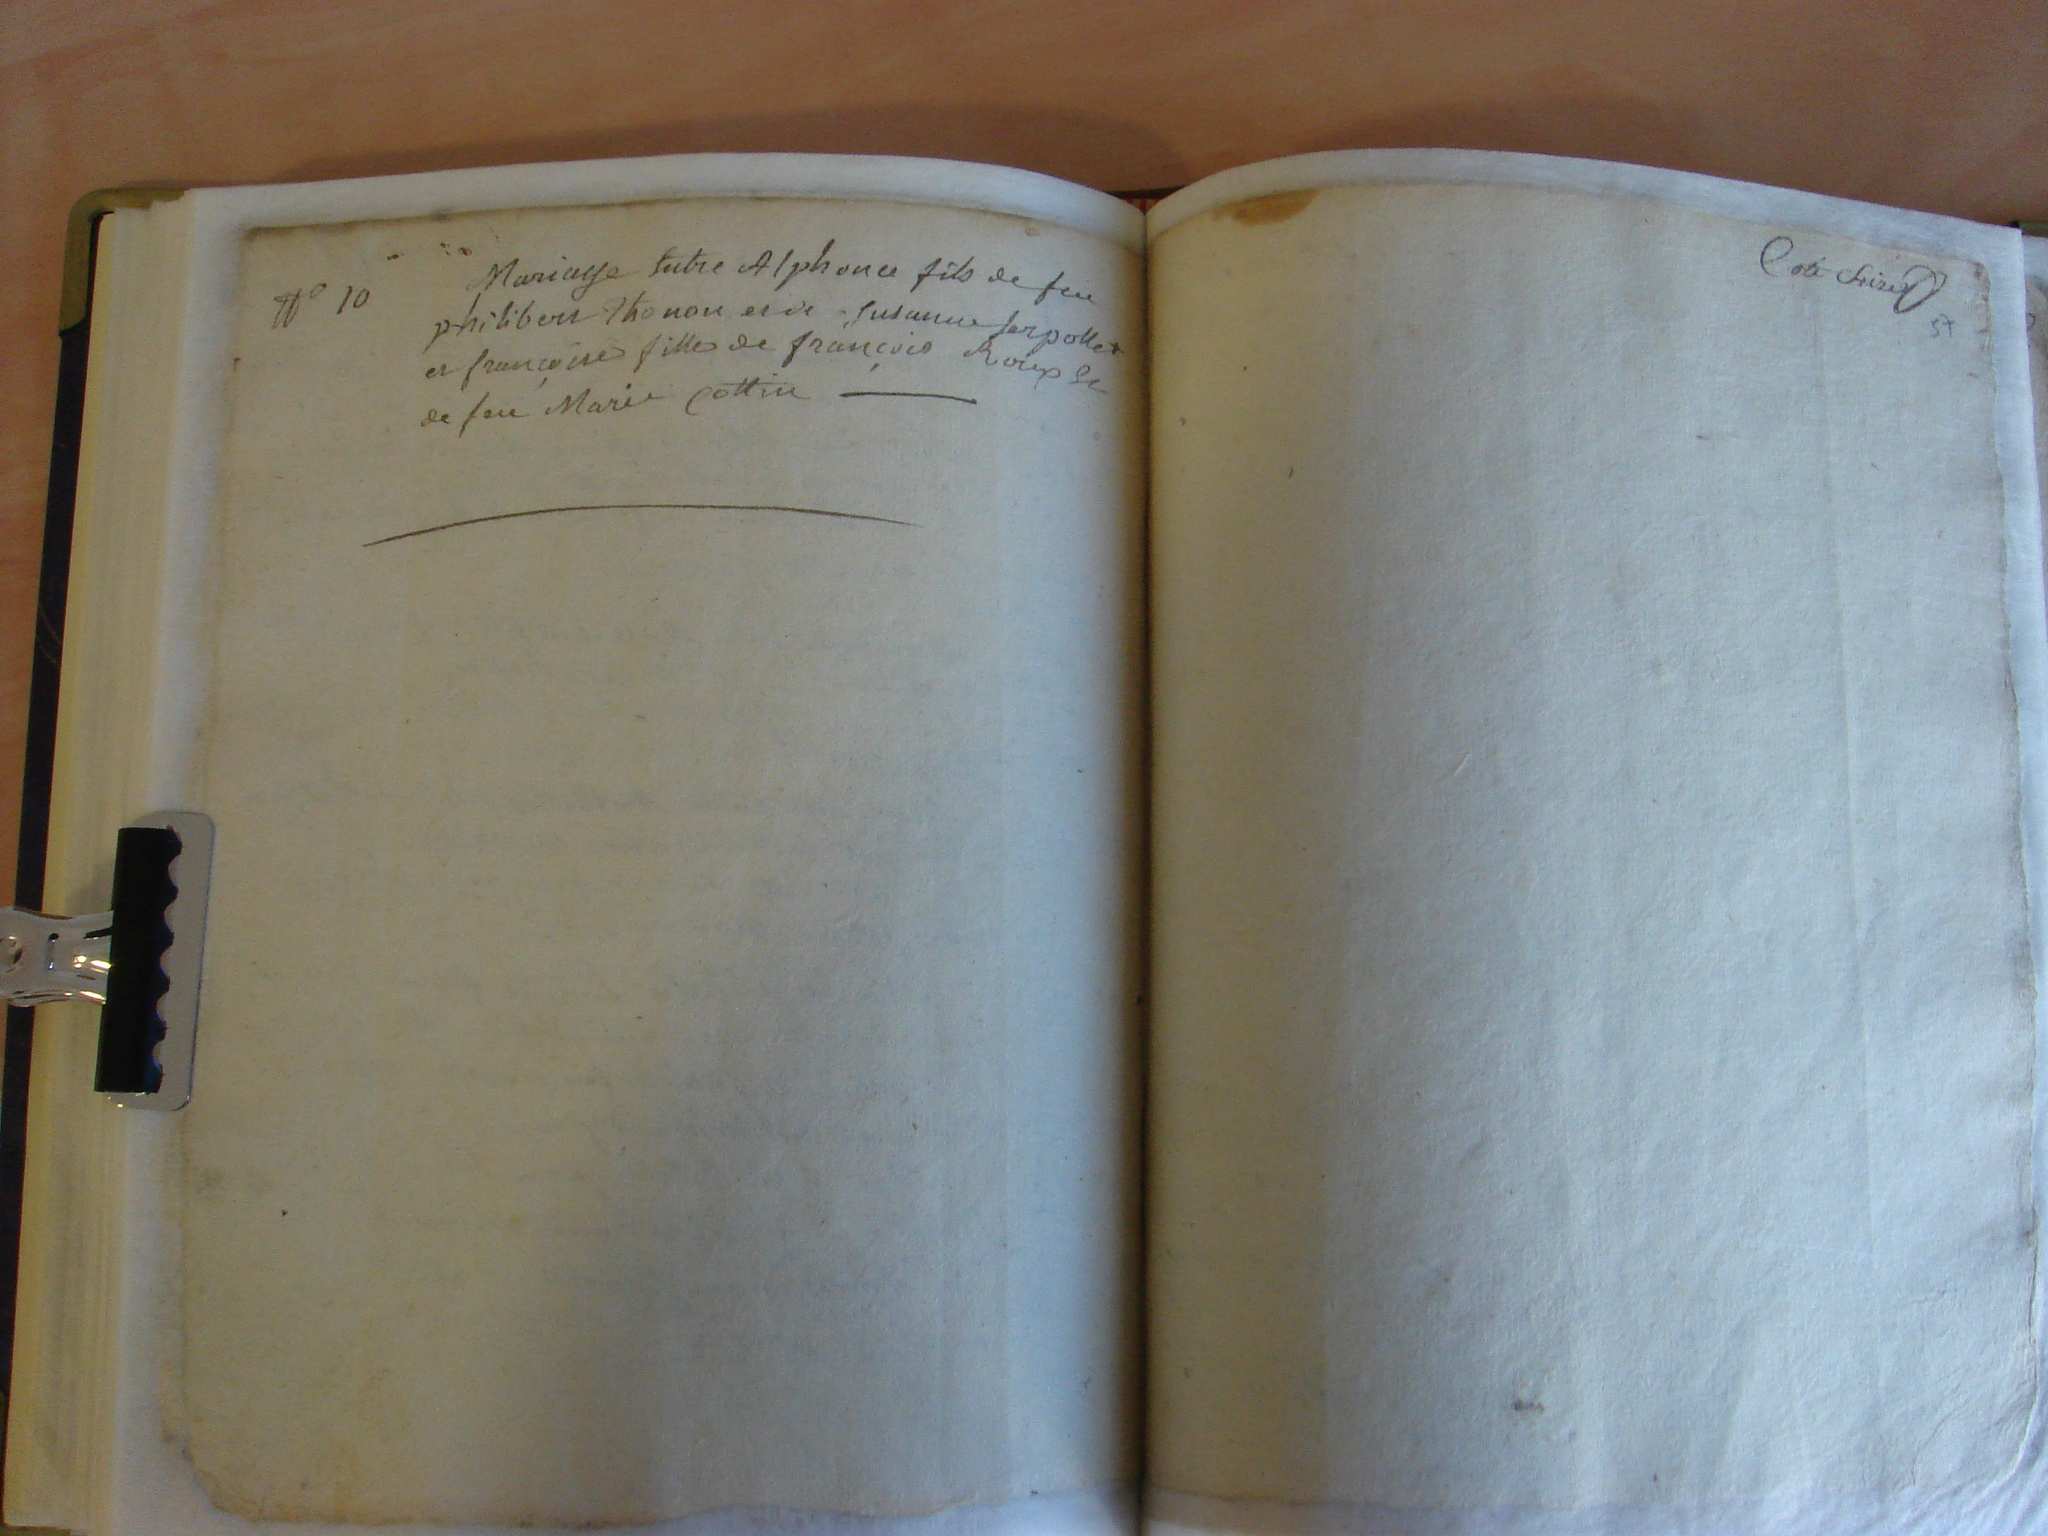 N° 10
Mariage Entre Alphonce fils de feu
philibert Thonon et de Susanne Serpollet
et françoise fille de françois Roux Et
de feu Marie Cottin
Cote Seize
57